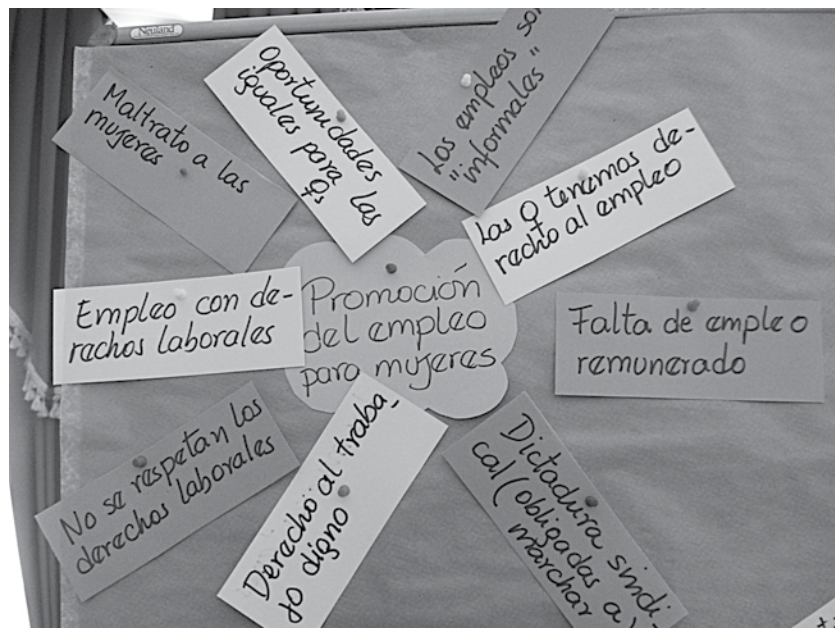 Neuland
Maltrato a las
mujeres
Oportunidades
iguales para las
♀s
Los empleos son
"informales"
Las ♀ tenemos de-
recho al empleo
Empleo con de-
rechos laborales
Promoción
del empleo
para mujeres
Falta de empleo
remunerado
No se respetan los
derechos laborales
Derecho al traba-
jo digno
Dictadura sindi-
cal (obligadas a
marchar